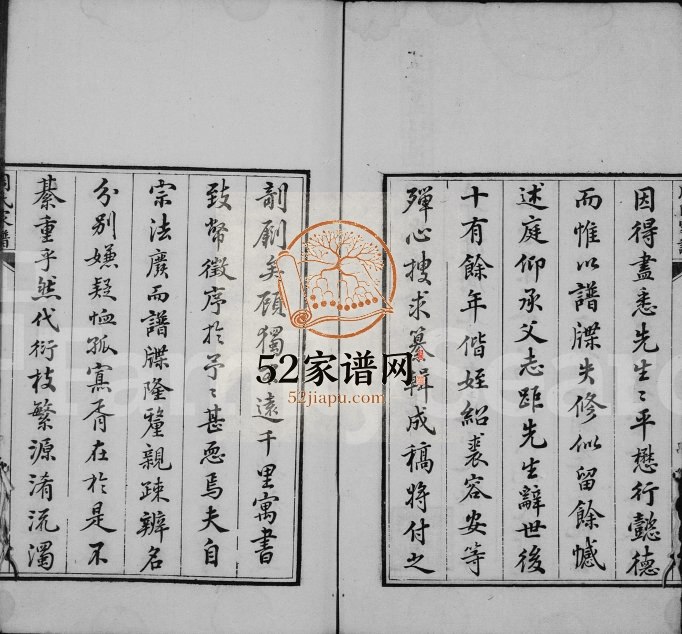 因得盡悉先生〻平懋行懿德
而惟以譜牒失修似留餘憾
述庭仰承父志距先生辭世後
十有餘年偕姪紹裘容安等
殫心搜求纂輯成稿將付之
剞劂矣顧獨遠千里寓書
致幣徵序於予〻甚恧焉夫自
宗法廢而譜牒隆釐親疎辦名
分别嫌疑恤孤寡胥在於是不
綦重乎然代衍枝繁源淆流濁
氏家譜
52家谱网
52jiapu.com